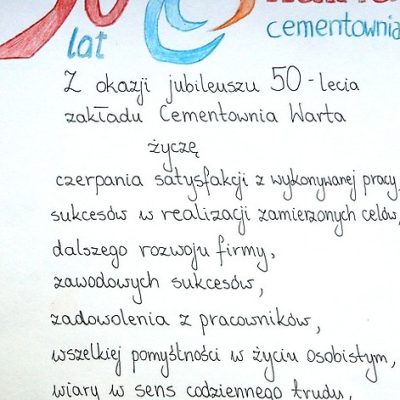 50
lat
cementownia
Z okazji jubileuszu 50-lecia
zakładu Cementownia Warta
życzę
czerpania satysfakcji z wykonywanej pracy,
sukcesów w realizacji zamierzonych celów,
dalszego rozwoju firmy,
zawodowych sukcesów,
zadowolenia z pracowników,
wszelkiej pomyślności w życiu osobistym,
wiary w sens codziennego trudu,